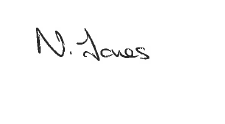 N. Jones